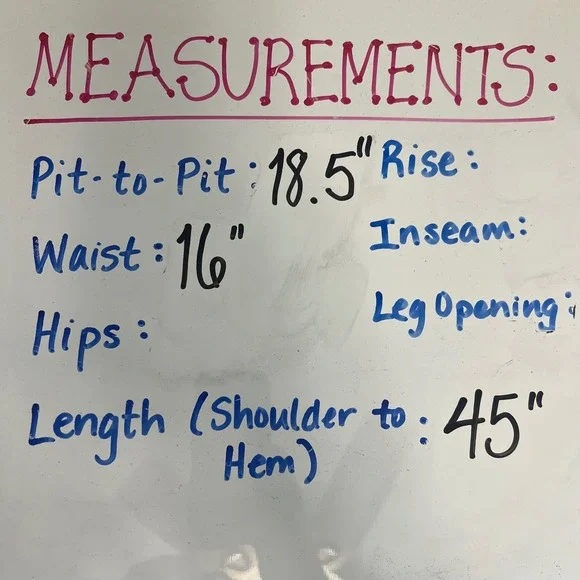 MEASUREMENTS:
Pit-to-Pit: 18.5"
Waist: 16"
Hips:
Rise:
Inseam:
Leg Opening:
Length (Shoulder to
Hem) : 45"